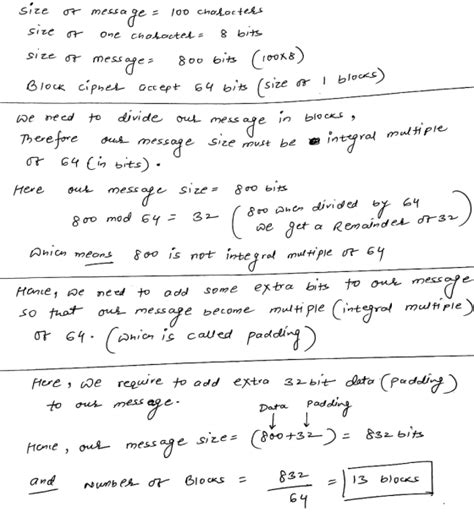 Size of message = 100 characters
size of one character = 8 bits
size of message = 800 bits (100x8)
Block cipher accept 64 bits (size of 1 blocks)
we need to divide our message in blocks,
Therefore our message size must be integral multiple
of 64 (in bits).
Here our message size = 800 bits
800 mod 64 = 32 (800 when divided by 64
we get a Remainder of 32)
which means 800 is not integral multiple of 64
Hence, we need to add some extra bits to our message
so that our message become multiple (integral multiple)
of 64. (which is called padding)
Here, we require to add extra 32 bit data (padding)
to our message.
Data padding
Hence, our message size = (800+32) = 832 bits
and Number of Blocks = 832 / 64 = 13 blocks